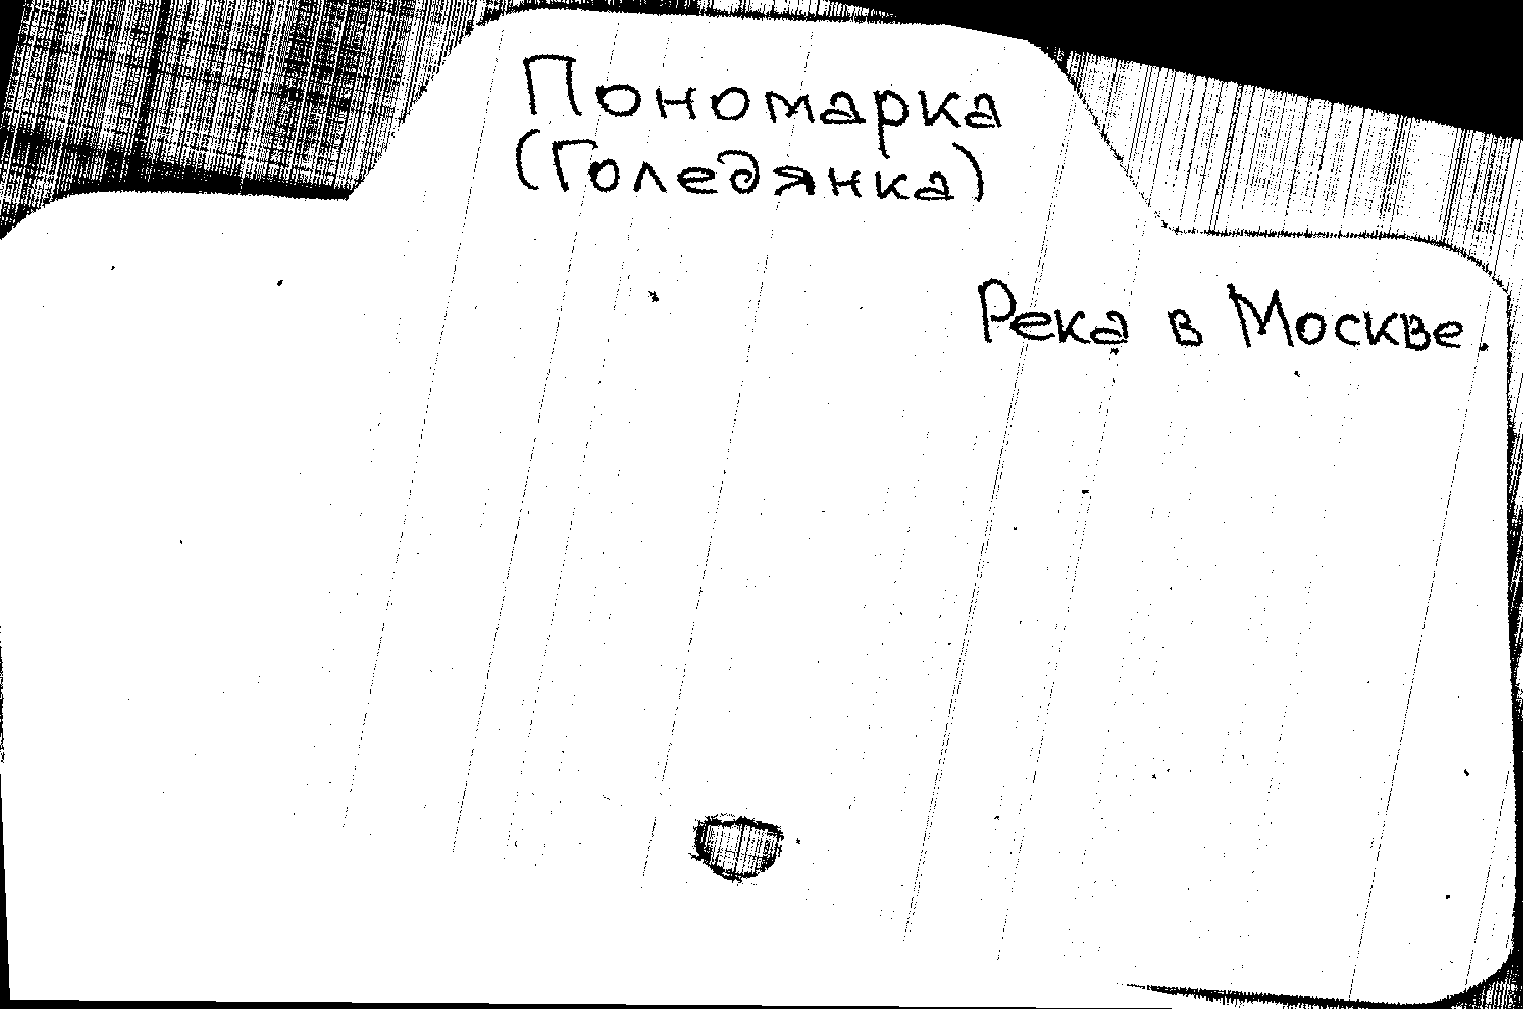 Пономарка
(Голедянка)
Река в Москве.